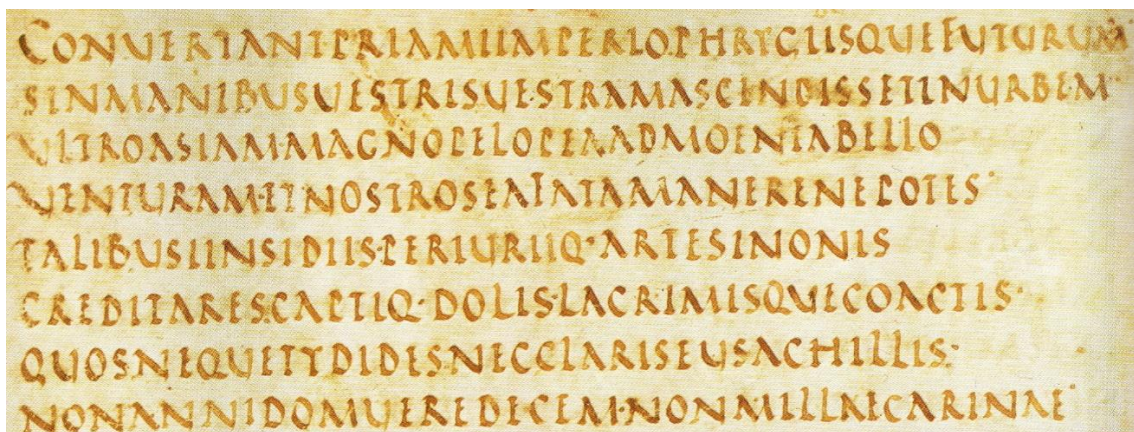 CONVERTANT·PRIAMIIMPERIOPHRYGIISQUEFUTURUM
SINMANIBUSUESTRISUESTRAMASCENDISSETINURBEM
ULTROASIAMMAGNOPELOPEAADMOENIABELLO
UENTURAM·ETNOSTROSEAFATAMANERENEPOTES·
TALIBUSIINSIDIIS·PERIURIIQ·ARTESINONIS
CREDITARES·CAPTIQ·DOLIS·LACRIMISQUECOACTIS·
QUOSNEQUETYDIDES·NECCLARISEUSACHILLIS·
NONANNIDOMUEREDECEM·NONMILLAECARINAE·